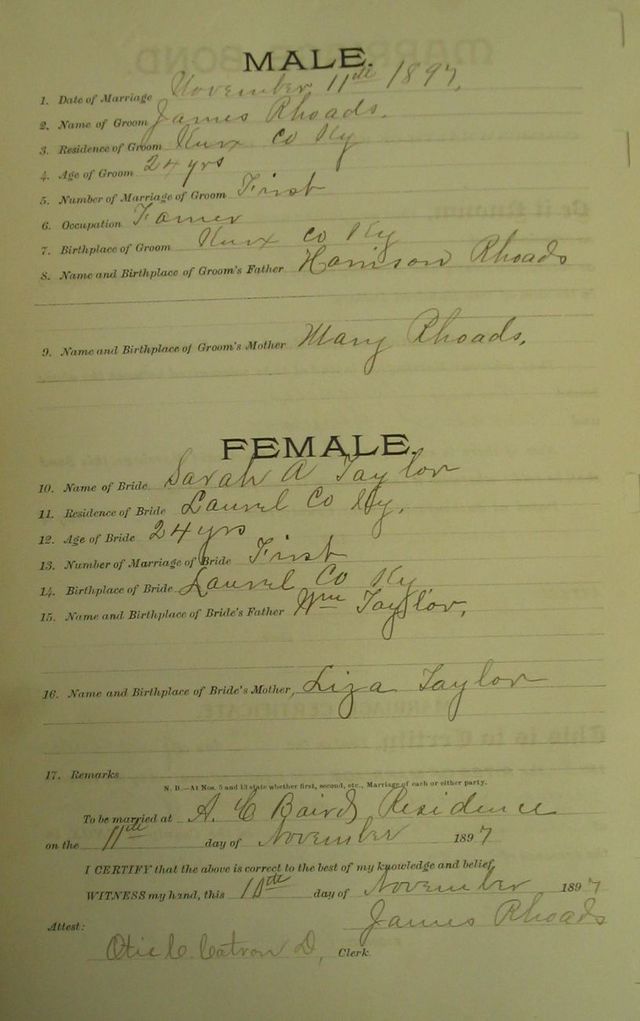 MALE.
1. Date of Marriage November 11th 1897.
2. Name of Groom James Rhoads.
3. Residence of Groom Knox Co Ky
4. Age of Groom 24 yrs
5. Number of Marriage of Groom First
6. Occupation Famer
7. Birthplace of Groom Knox Co Ky
8. Name and Birthplace of Groom's Father Harrison Rhoads
9. Name and Birthplace of Groom's Mother Mary Rhoads.
FEMALE.
10. Name of Bride Sarah A Taylor
11. Residence of Bride Laurel Co Ky.
12. Age of Bride 24 yrs
13. Number of Marriage of Bride First
14. Birthplace of Bride Laurel Co Ky
15. Name and Birthplace of Bride's Father Wm Taylor,
16. Name and Birthplace of Bride's Mother, Liza Taylor
17. Remarks
N. B.—At Nos. 5 and 13 state whether first, second, etc., Marriage of each or either party.
To be married at A. C Bairds Residence
on the 11th day of November 1897
I CERTIFY that the above is correct to the best of my knowledge and belief.
WITNESS my hand, this 10th day of November 1897
James Rhoads
Attest:
Catron D, Clerk.